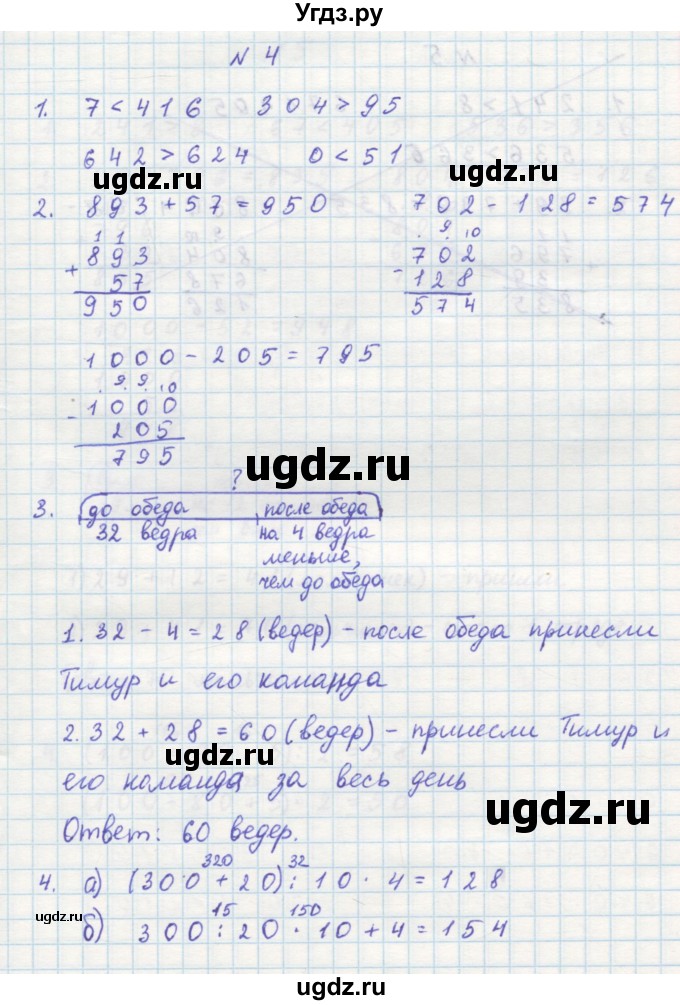 Угдз.ру
N 4
1. 7 < 416 304 > 95
642 > 624 0 < 51
ugdz.ru
2. 893 + 57 = 950 702 - 128 = 574
1 1 . 9. 10
+ 893 - 702
57 128
950 574
ugdz.ru
1000 - 205 = 795
. 9. 9. 10
- 1000
205
795
ugdz.ru
?
3. до обеда после обеда
32 ведра на 4 ведра
меньше,
чем до обеда
ugdz.ru
1. 32 - 4 = 28 (ведер) - после обеда принесли
Тимур и его команда
2. 32 + 28 = 60 (ведер) - принесли Тимур и
ugdz.ru
его команда за весь день
ugdz.ru
Ответ: 60 ведер.
320 32
4. а) (300 + 20) : 10 · 4 = 128
ugdz.ru
15 150
б) 300 : 20 · 10 + 4 = 154
ugdz.ru
ugdz.ru